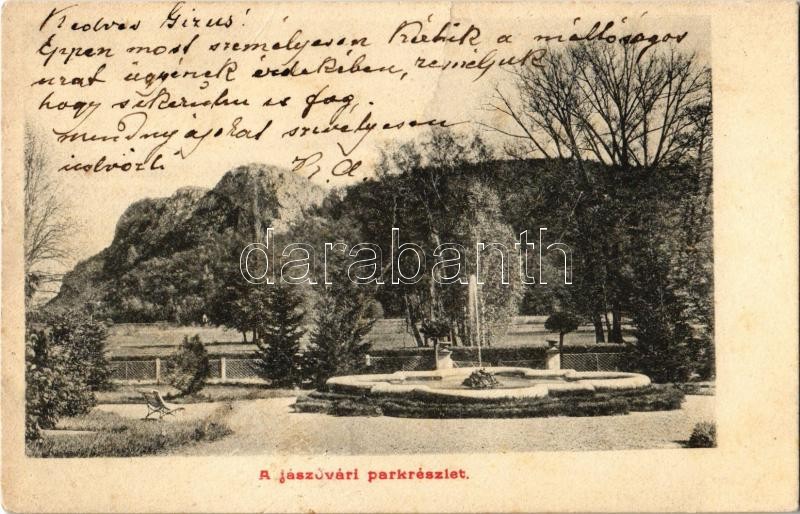 Kedves Gizus!
Éppen most személyesen kérünk a méltóságos
urat ügyének érdekében, reméljük
hogy sikerülni is fog,
mindnyájokat szívélyesen
üdvözli K. A.
darabanth
A jászóvári parkrészlet.